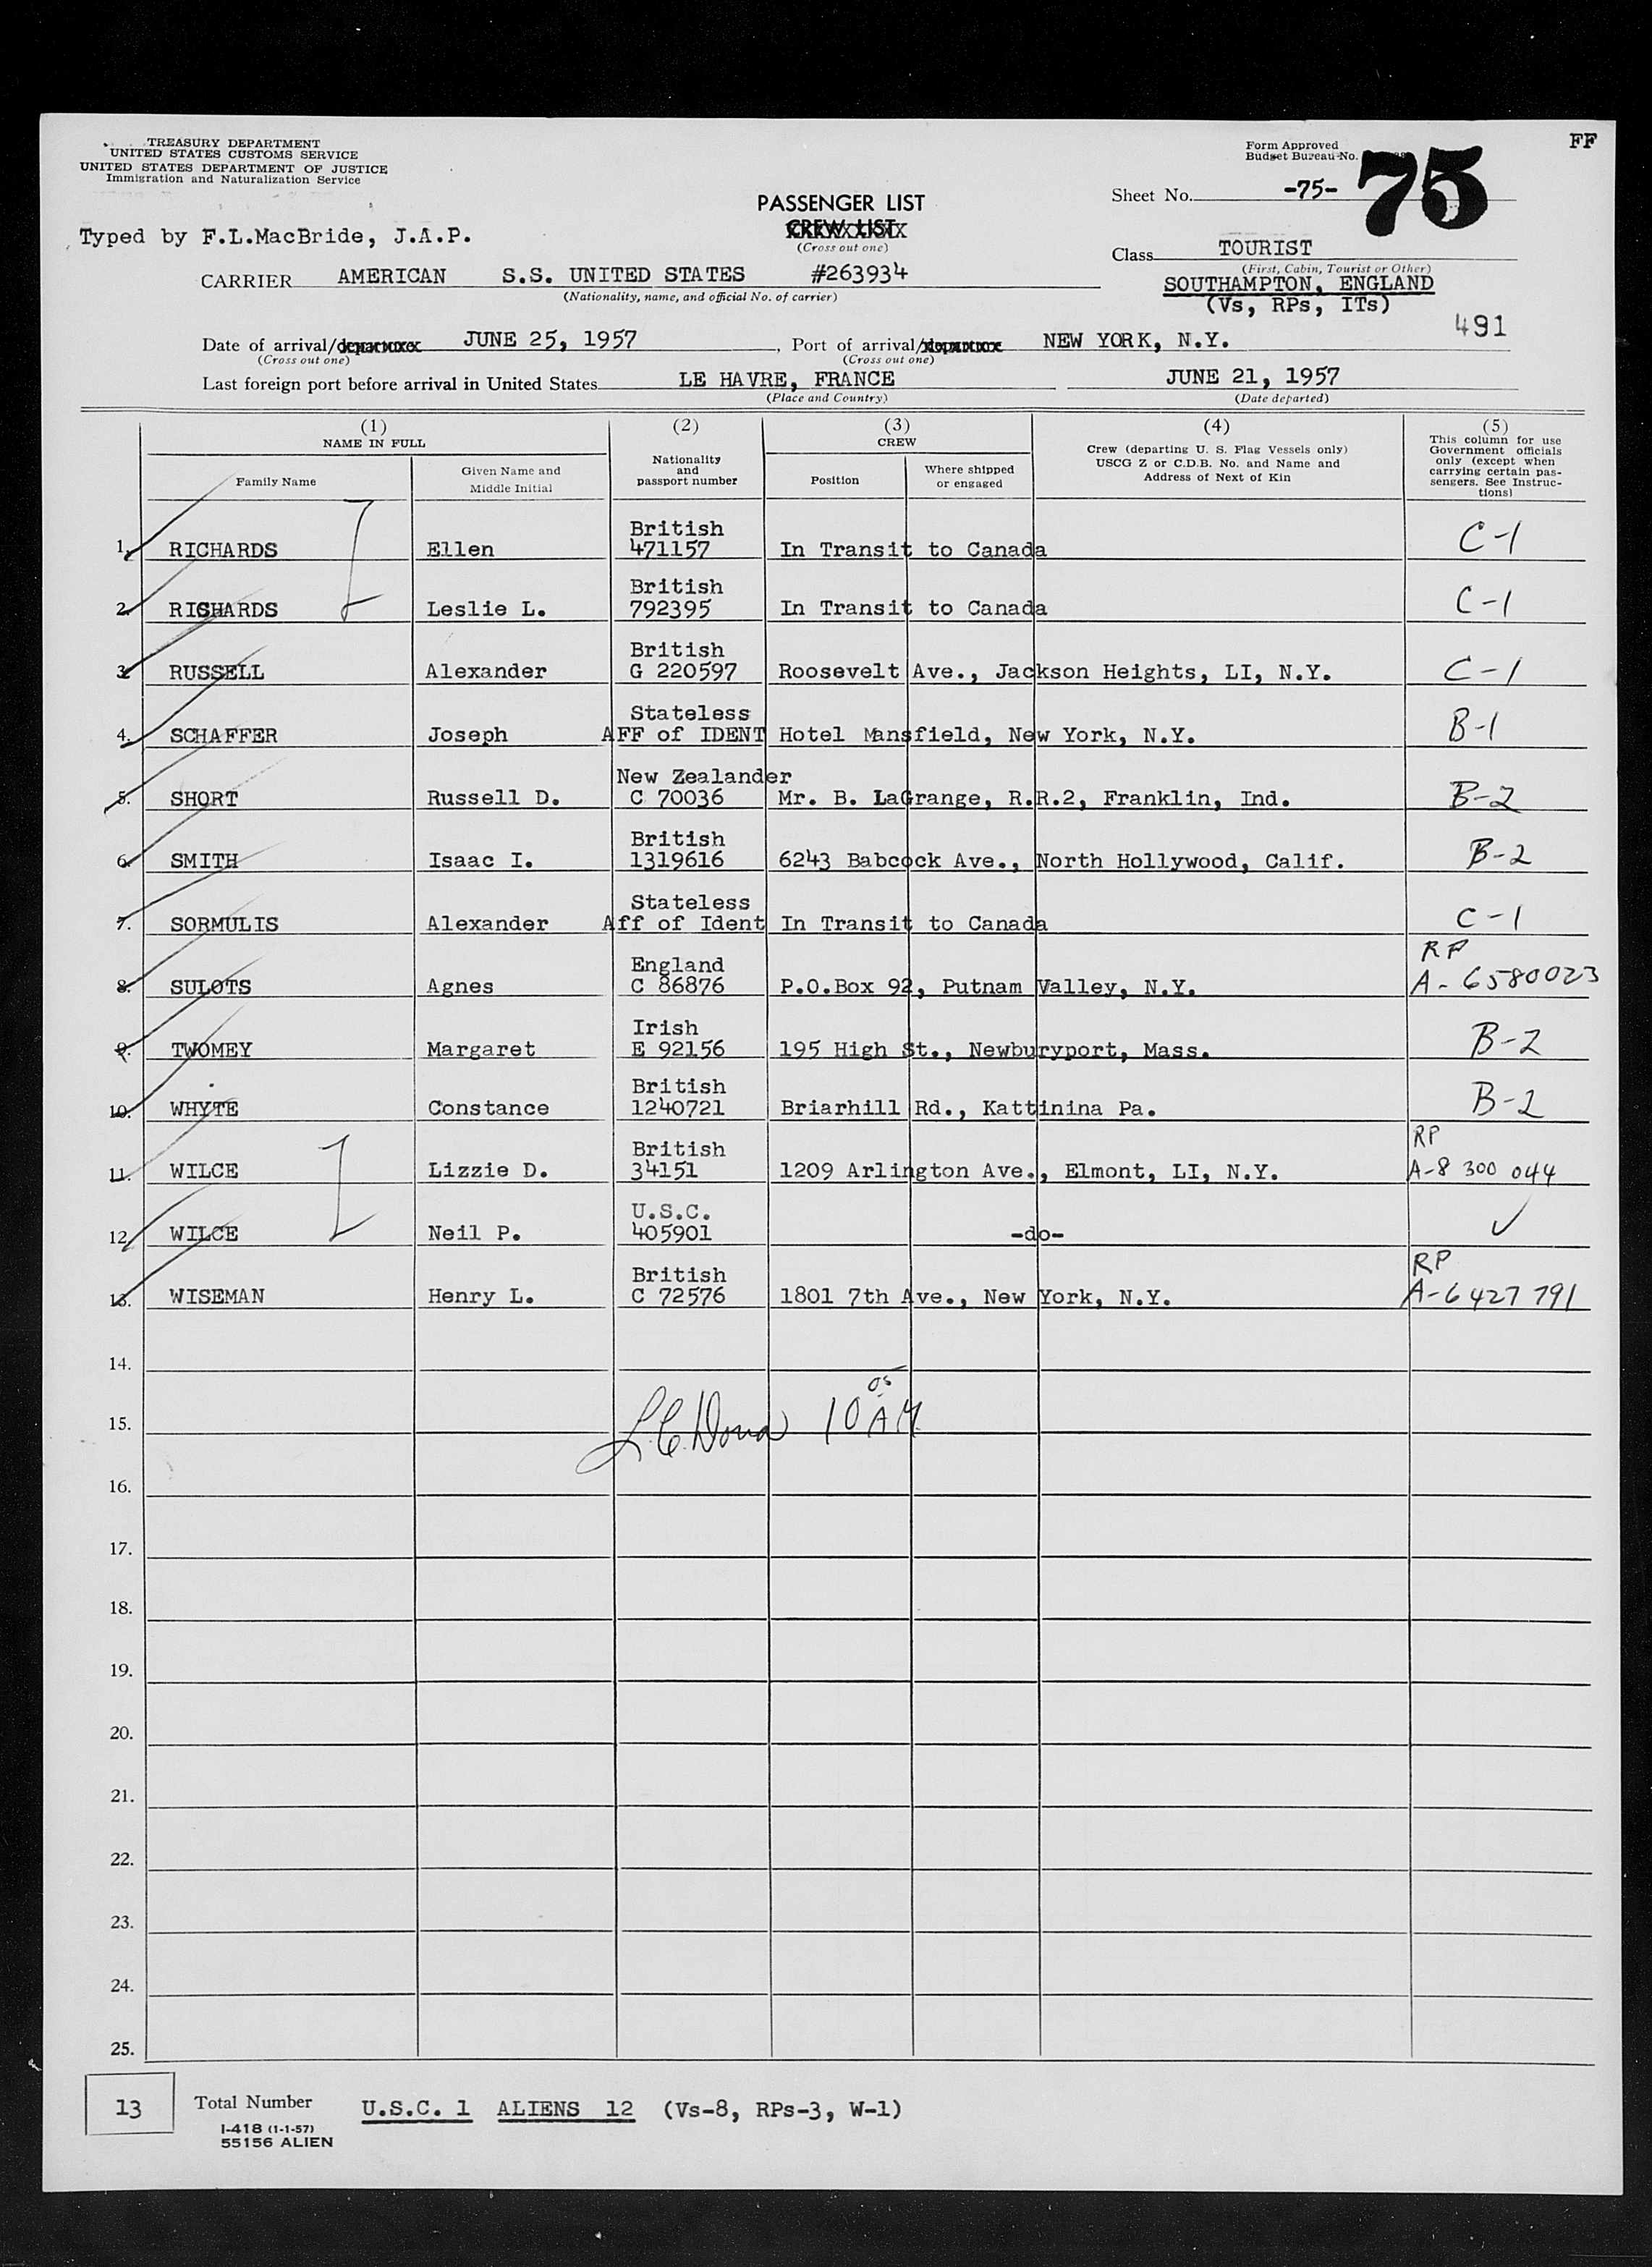 TREASURY DEPARTMENT
UNITED STATES CUSTOMS SERVICE
UNITED STATES DEPARTMENT OF JUSTICE
Immigration and Naturalization Service
Form Approved
Budget Bureau No.
FF
75
Sheet No. -75-
PASSENGER LIST
CREW LIST
(Cross out one)
Typed by F.L.MacBride, J.A.P.
Class TOURIST
(First, Cabin, Tourist or Other)
CARRIER AMERICAN S.S. UNITED STATES #263934
(Nationality, name, and official No. of carrier)
SOUTHAMPTON, ENGLAND
(Vs, RPs, ITs)
491
Date of arrival/departure JUNE 25, 1957, Port of arrival/departure NEW YORK, N.Y.
(Cross out one) (Cross out one)
Last foreign port before arrival in United States LE HAVRE, FRANCE JUNE 21, 1957
(Place and Country) (Date departed)
(1) NAME IN FULL
Family Name
Given Name and Middle Initial
(2) Nationality and passport number
(3) CREW
Position
Where shipped or engaged
(4) Crew (departing U. S. Flag Vessels only) USCG Z or C.D.B. No. and Name and Address of Next of Kin
(5) This column for use Government officials only (except when carrying certain passengers. See Instructions)
1. RICHARDS Ellen British 471157 In Transit to Canada C-1
2. RICHARDS Leslie L. British 792395 In Transit to Canada C-1
3. RUSSELL Alexander British G 220597 Roosevelt Ave., Jackson Heights, LI, N.Y. C-1
4. SCHAFFER Joseph Stateless AFF of IDENT Hotel Mansfield, New York, N.Y. B-1
5. SHORT Russell D. New Zealander C 70036 Mr. B. LaGrange, R.R.2, Franklin, Ind. B-2
6. SMITH Isaac I. British 1319616 6243 Babcock Ave., North Hollywood, Calif. B-2
7. SORMULIS Alexander Stateless Aff of Ident In Transit to Canada C-1
8. SULOTS Agnes England C 86876 P.O.Box 92, Putnam Valley, N.Y. RP A-6580023
9. TWOMEY Margaret Irish E 92156 195 High St., Newburyport, Mass. B-2
10. WHYTE Constance British 1240721 Briarhill Rd., Kattinina Pa. B-2
11. WILCE Lizzie D. British 34151 1209 Arlington Ave., Elmont, LI, N.Y. RP A-8 300 044
12. WILCE Neil P. U.S.C. 405901 -do- ✓
13. WISEMAN Henry L. British C 72576 1801 7th Ave., New York, N.Y. RP A-6427791
14.
15. 10 05 AM
16.
17.
18.
19.
20.
21.
22.
23.
24.
25.
13 Total Number U.S.C. 1 ALIENS 12 (Vs-8, RPs-3, W-1)
I-418 (1-1-57)
55156 ALIEN